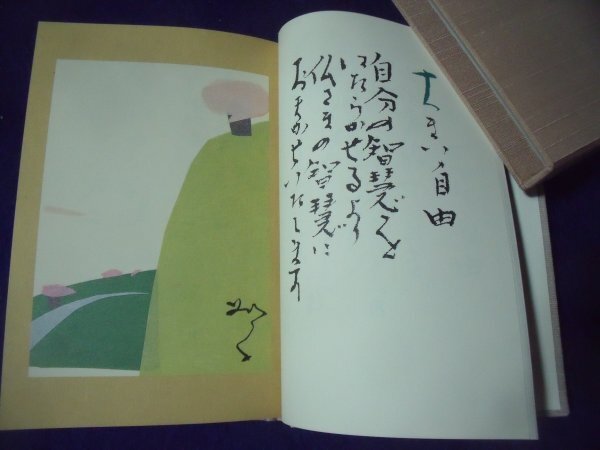 大きい自由
自分の智慧を
はたらかせるより
仏さまの智慧に
おまかせいたします